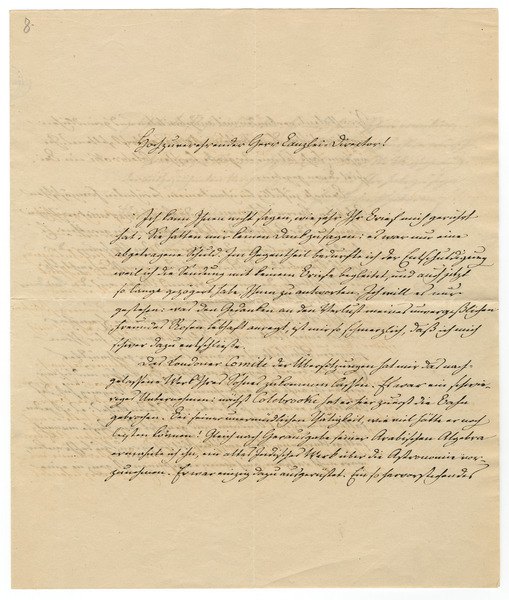 8.
Hochzuverehrender Herr Canzlei-Director!
Ich kann Ihnen nicht sagen, wie sehr Ihr Brief mich gerührt
hat. Sie hatten mir keinen Dank zu sagen: es war nur eine
abgetragene Schuld. Im Gegentheil bedurfte ich der Entschuldigung
weil ich die Sendung mit keinem Briefe begleitet, und auch jetzt
so lange gezögert habe, Ihnen zu antworten. Ich will es nur
gestehen: was den Gedanken an den Verlust meines unvergeßlichen
Freundes Rosen lebhaft anregt, ist mir so schmerzlich, daß ich mich
schwer dazu entschließe.
Das Londoner Comité der Übersetzungen hat mir das nach-
gelassene Werk Ihres Sohnes zukommen lassen. Es war ein schwie-
riges Unternehmen: nächst Colebrooke hat er hier zuerst die Bahn
gebrochen. Bei seiner unermüdlichen Thätigkeit, wie viel hätte er noch
leisten können! Gleich nach Herausgabe seiner Arabischen Algebra
ermahnte ich ihn, ein altes Indisches Werk über die Astronomie vor-
zunehmen. Er war einzig dazu ausgerüstet. Ein so hervorstechendes